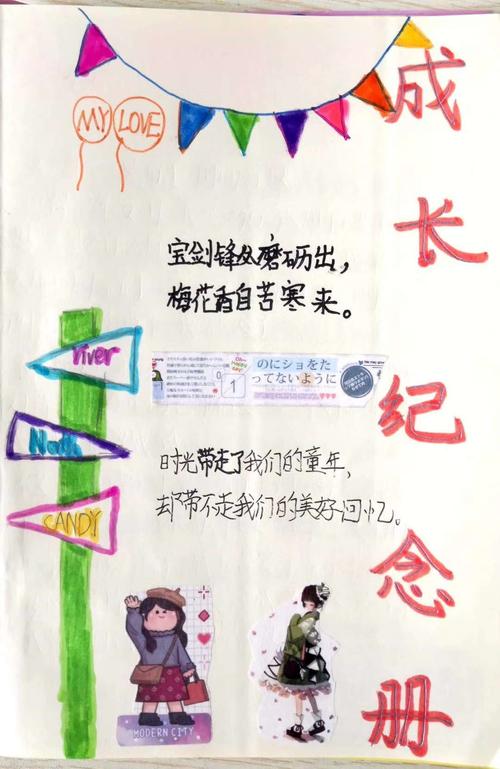 成长纪念册
MY LOVE
宝剑锋从磨砺出，
梅花香自苦寒来。
river
North
CANDY
0
1
のにショをた
ってないように
时光带走了我们的童年，
却带不走我们的美好回忆。
MODERN CITY